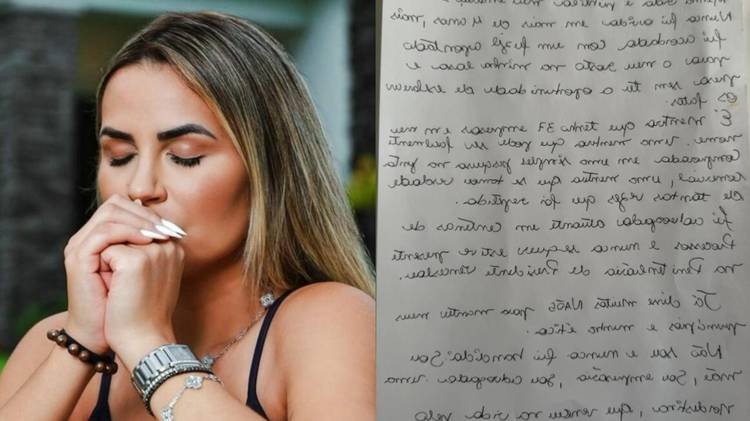 Nunca fui ouvida em mais de 4 anos, mas,
fui acordada com um fuzil apontado
para o meu rosto na minha casa e
presa sem ter a oportunidade de esclarecer
os fatos.
É mentira que tenho 37 empresas em meu
nome. Uma mentira que pode ser facilmente
comprovada em uma simples pesquisa na junta
comercial, uma mentira que se torna verdade
de tantas vezes que foi repetida.
Fui advogada atuante em centenas de
Processos e nunca sequer estive presente
na Penitenciária de Presidente Venceslau.
Já disse muitos NÃOS para manter meus
princípios e minha ética.
Não sou e nunca fui bandida! Sou
mãe, Sou empresária, Sou advogada, uma
nordestina, que venceu na vida pelo